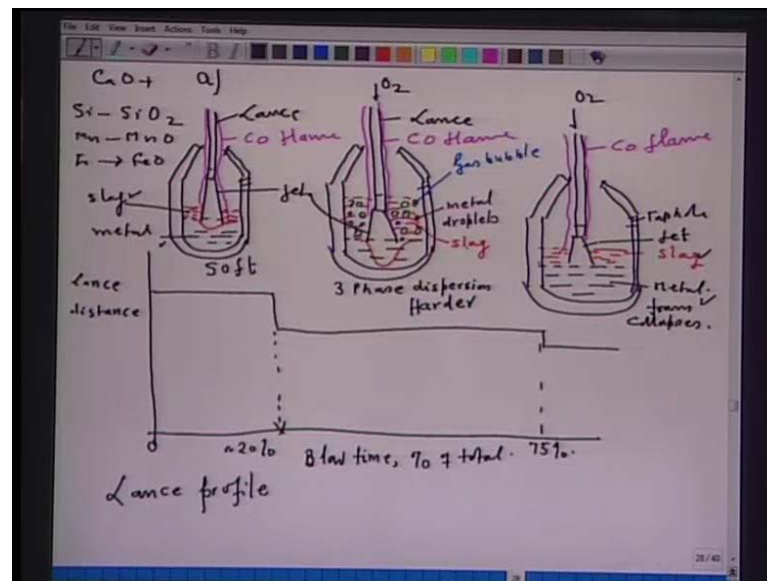 File Edit View Insert Actions Tools Help
CaO+ a)
Si - SiO2
Mn - MnO
Fe → FeO
Lance
CO flame
slag
metal
Jet
Soft
O2
Lance
CO flame
Gas bubble
metal
droplets
slag
3 Phase dispersion
Harder
O2
CO flame
Taphole
Jet
slag
Metal
Collapses.
Lance
distance
0
~20%
Blow time, % of total.
75%.
Lance profile
28/40